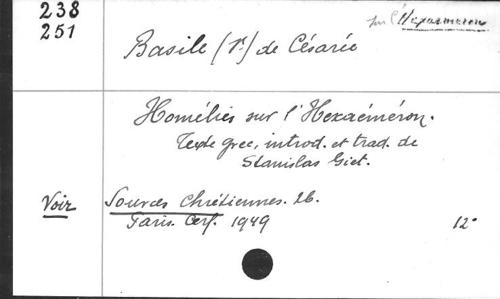 238
251
sur l'Hexaéméron
Basile (St) de Césarée
Homélies sur l'Hexaéméron.
Texte grec, introd. et trad. de
Stanislas Giet.
Voir
Sources Chrétiennes. 26.
Paris. Cerf. 1949
12°